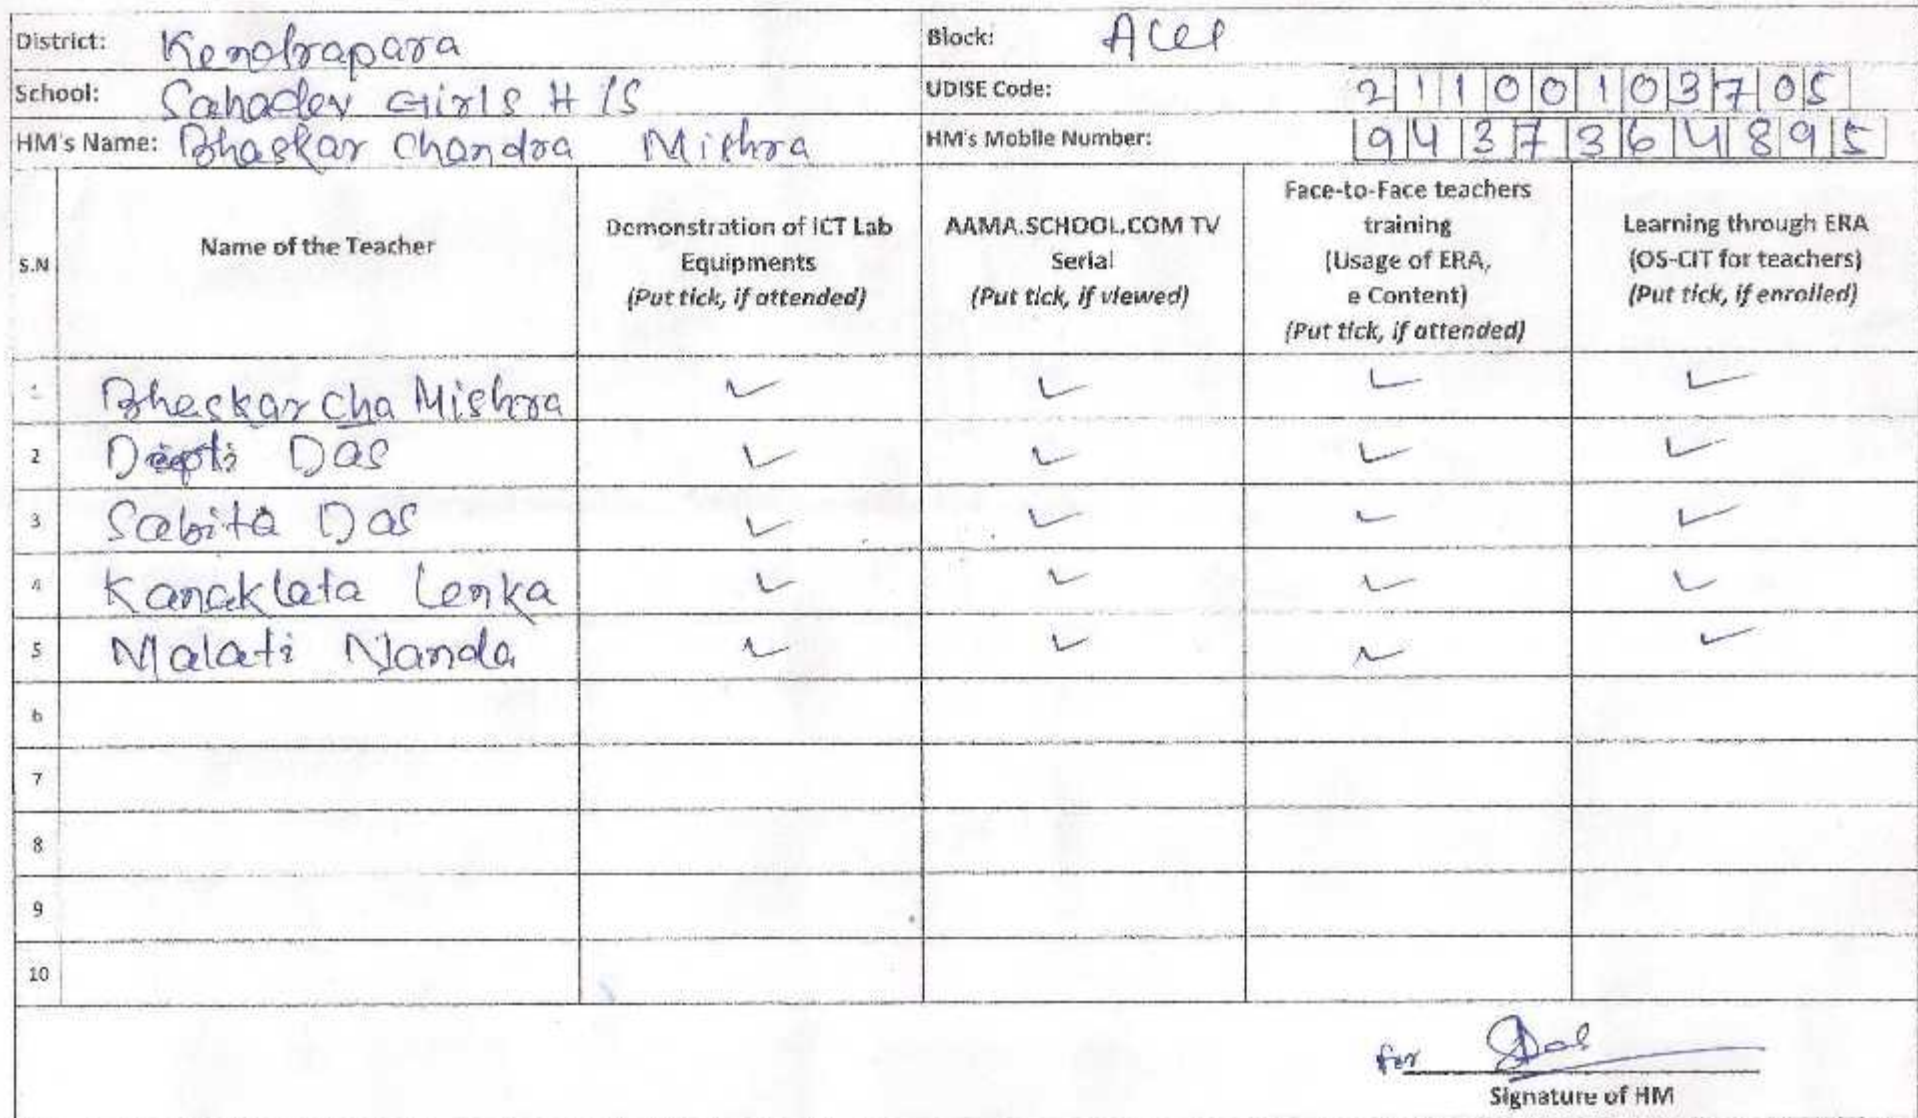 District: Kendrapara Block: Aul
School: Sahadev Girls H/S UDISE Code: 21100103705
HM's Name: Bhaskar Chandra Mishra HM's Mobile Number: 9437364895
S.N Name of the Teacher Demonstration of ICT Lab Equipments (Put tick, if attended) AAMA.SCHOOL.COM TV Serial (Put tick, if viewed) Face-to-Face teachers training (Usage of ERA, e Content) (Put tick, if attended) Learning through ERA (OS-CIT for teachers) (Put tick, if enrolled)
1 Bhaskar Cha Mishra ✓ ✓ ✓ ✓
2 Deepti Das ✓ ✓ ✓ ✓
3 Sabita Das ✓ ✓ ✓ ✓
4 Kanaklata Lenka ✓ ✓ ✓ ✓
5 Malati Nanda ✓ ✓ ✓ ✓
6
7
8
9
10
for SDas
Signature of HM